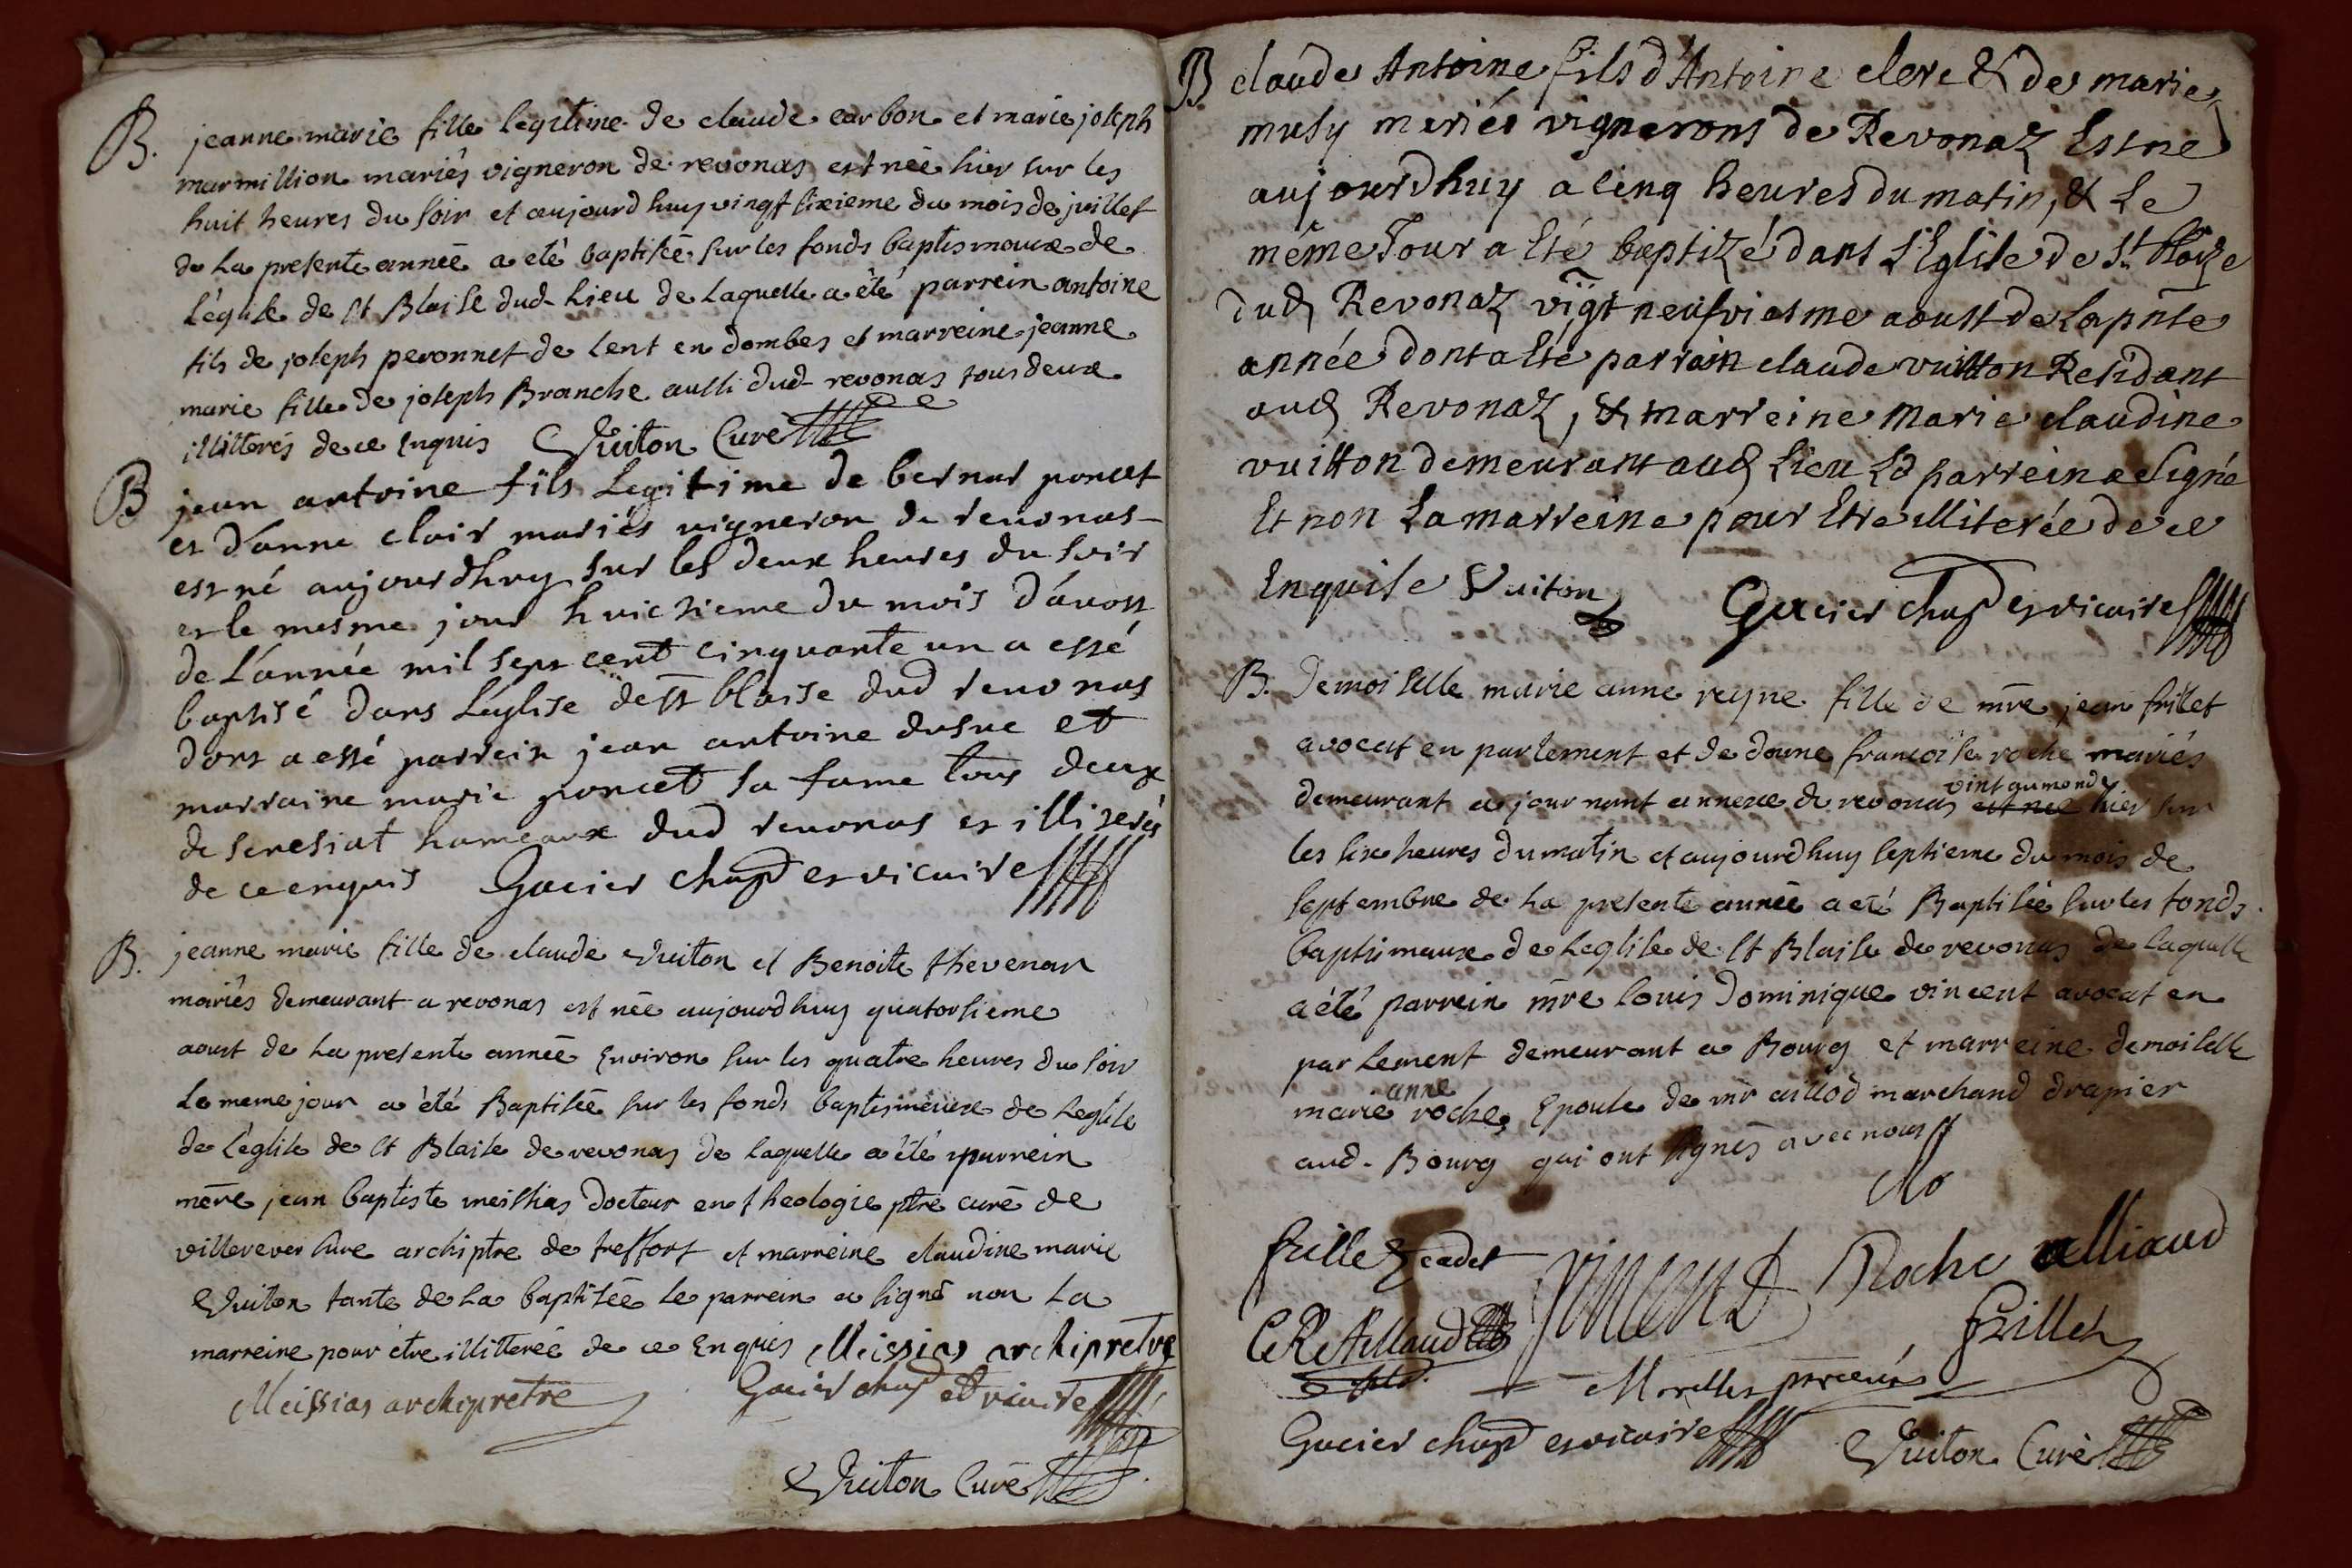 B. jeanne marie fille legitime de claude carbon et marie joseph
marmillion mariés vigneron de revonas est née hier sur les
huit heures du soir et aujourdhuy vingt sixieme du mois de juillet
de la presente année a eté baptisée sur les fonds baptismaux de
l'eglise de st Blaise dud. lieu de laquelle a été parrein antoine
fils de joseph peronnet de lent en dombes et marreine jeanne
marie fille de joseph Branche aussi dud revonas tous deux
illiterés de ce enquis Vuiton Curé
B jean antoine fils legitime de bernar poncet
et d'anne clair mariés vigneron de revonas
est né aujourdhuy sur les deux heures du soir
et le mesme jour huictieme du mois d'auost
de l'année mil sept cent cinquante un a essé
baptisé dans l'église de st blaise dud revonas
dont a essé parrein jean antoine et
marraine marie poncet sa fame tous deux
de senesiat hameaux dud revonas et illiterés
de ce enquis Gacier chap et vicaire
B. jeanne marie fille de claude Vuiton et Benoite thevenar
mariés demeurant a revonas est née aujourdhuy quatorsieme
aoust de la presente année Environ sur les quatre heures du soir
le meme jour a été Baptisée sur les fonds baptismeaux de leglise
de l'eglise de st Blaise de revonas de laquelle a été parrein
mere jean baptiste meissias docteur en theologie ptre curé de
villereversure archiptre de treffort et marreine claudine marie
Vuiton tante de la baptisée le parrein a signé non la
marreine pour être illitterée de ce Enquis Meissias archipretre
Meissias archipretre Gacier chap et vicaire
Vuiton Curé
B claude Antoine fils d'Antoine clerc & de marie
musy mariés vignerons de Revonaz Est né
aujourdhuy a cinq heures du matin, & Le
même Jour a Eté baptizé dans L'Eglise de St. Blaize
dud Revonaz vigt neufviesme aoust de la pnte
année dont a Eté parrain claude vuitton Residant
aud Revonaz, & marreine Marie claudine
vuitton demeurant aud Lieu Ld parrein a Signé
Et non La marreine pour Etre illiterée de ce
Enquise Vuiton Gacier chap et vicaire
B. Demoiselle marie anne reyne fille de mre jean frillet
avocat en parlement et de dame francoise roche mariés
demeurant a journant annexe de revonas est née vint au monde hier sur
les six heures du matin et aujourdhuy septieme du mois de
septembre de la presente année a eté Baptisée sur les fonds
baptismaux de leglise de st Blaise de revonas de laquelle
a été parrein mre louis Dominique vincent avocat en
parlement demeurant a Bourg et marreine demoiselle
marie anne roche Epouse de mr aillod marchand drapier
aud. Bourg qui ont signés avec nous
frillet cadet Vincent Roche alliaud
Frillet
Gacier chap et vicaire Vuiton Curé